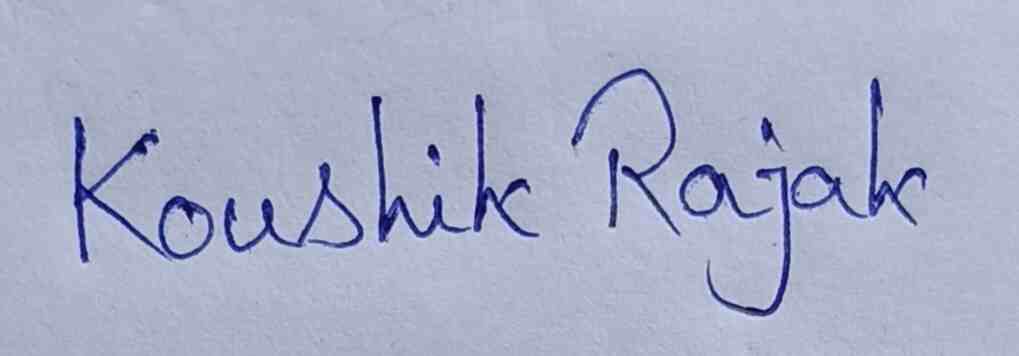 Koushik Rajak